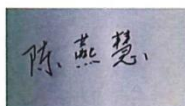 陈燕慧